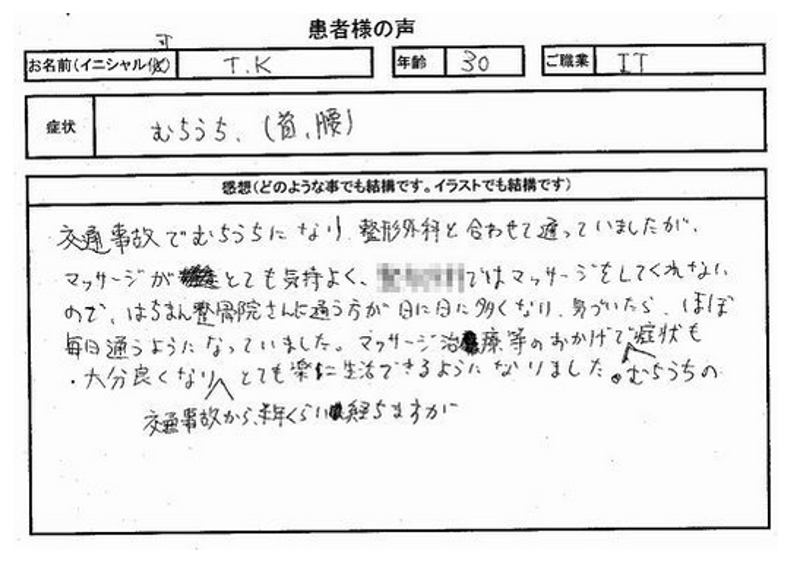 患者様の声
お名前(イニシャル可) T.K 年齢 30 ご職業 IT
症状 むちうち、(首、腰)
感想(どのような事でも結構です。イラストでも結構です)
交通事故でむちうちになり、整形外科と合わせて通っていましたが、
マッサージがとても気持よく、ではマッサージをしてくれない
ので、はちまん整骨院さんに通う方が日に日に多くなり、気づいたら、ほぼ
毎日通うようになっていました。マッサージ治療等のおかげで症状も
大分良くなりとても楽に生活できるようになりました。むちうちの
交通事故から、半年くらい経ちますが